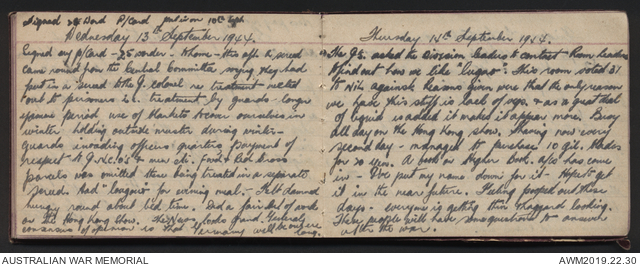 Signed 25 Word P/Card put in on 10th Sept
Wednesday 13th September 1944.
Signed my P/Card - 25 words - Home - this aft. a screed
came round from the Central Committee saying they had
put in a screed to the J. Colonel re treatment meted
out to prisoners i.e. treatment by guards - longer
period use of blankets to cover ourselves in
winter - holding outside muster during winter -
guards invading officers quarters payment of
respect to J. N.C.O's & men etc. Food & Red Cross
parcels was omitted these being treated in a separate
screed. Had "lugno" for evening meal. - Felt damned
hungry round about bed time. Did a fair bit of work
on the Hong Kong show. The News looks grand. General
consensus of opinion is that Germany will be out before
long.
Thursday 14th September 1944.
The J's. asked the Division leaders to contact Room leaders
to find out how we like "lugno". This room voted 31
to Nil against. Reasons given were that the only reason
we have this stuff is lack of veg. & as a great deal
of liquid is added it makes it appear more. Busy
all day on the Hong Kong show. Shaving now every
second day - managed to purchase 10 gil. blades
for 20 yen. A book on Higher Book. a/cs has come
in - I've put my name down for it - Hope to get
it in the near future. Feeling pooped out these
days - everyone is getting thin & haggard looking.
These people will have some questions to answer
after the war.
AUSTRALIAN WAR MEMORIAL
AWM2019.22.30